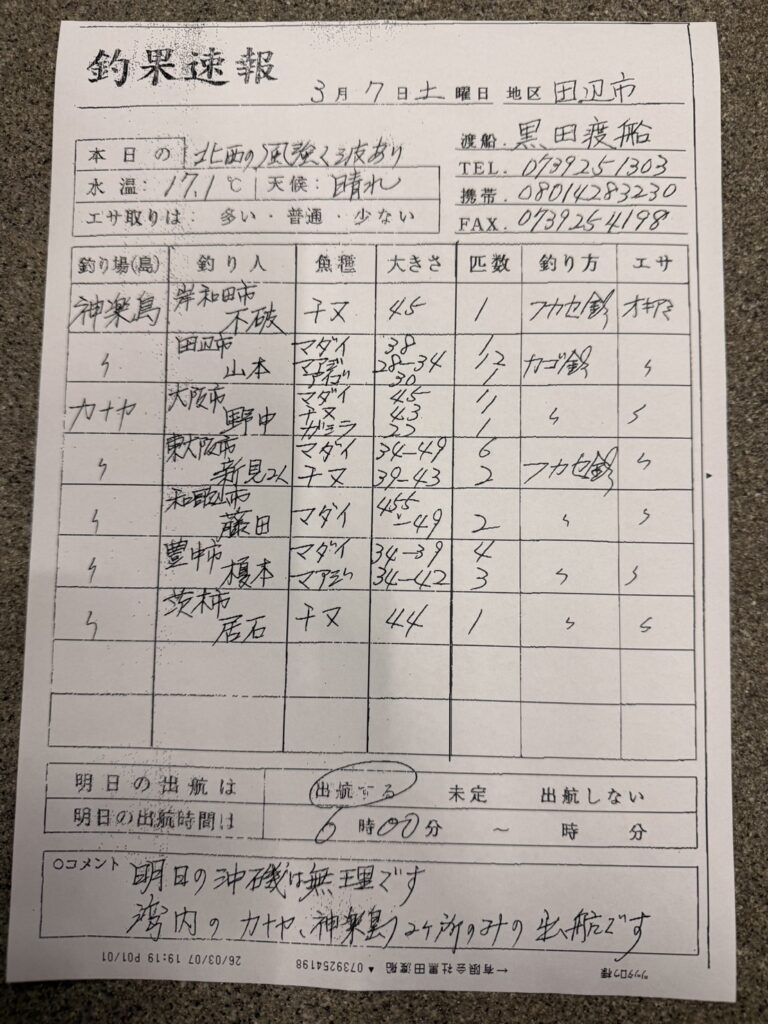 釣果速報
3月7日土曜日 地区 田辺市
渡船. 黒田渡船
TEL. 0739251303
携帯. 08014283230
FAX. 0739254198
本日の 北西の風強く波あり
水温: 17.1℃ 天候: 晴れ
エサ取りは: 多い・普通・少ない
釣り場(島) 釣り人 魚種 大きさ 匹数 釣り方 エサ
神楽島 岸和田市 不破 チヌ 45 1 フカセ釣 オキアミ
〃 田辺市 山本 マダイ 38 1 カゴ釣 〃
マアジ 28-34 12
アイゴ 30 1
カナヤ 大阪市 野中 マダイ 45 1 〃 〃
チヌ 43 1
ガシラ 22 1
〃 東大阪市 新見2人 マダイ 34-49 6 フカセ釣 〃
チヌ 39-43 2
〃 和歌山市 藤田 マダイ 455-49 2 〃 〃
〃 豊中市 榎本 マダイ 34-39 4 〃 〃
マアジ 34-42 3
〃 茨木市 居石 チヌ 44 1 〃 〃
明日の出航は 出航する 未定 出航しない
明日の出航時間は 6時00分 ~ 時 分
○コメント 明日の沖磯は無理です
湾内のカナヤ、神楽島2ヶ所のみの出船です
ツッタロウ様
←有限会社黒田渡船 ▲0739254198
26/03/07 19:19 P01/01